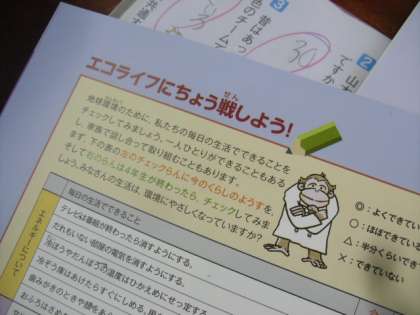 エコライフにちょう戦しよう!
地球環境のために、私たちの毎日の生活でできることを
チェックしてみましょう。一人ひとりができることもある
し、家族で話し合って取り組むこともあります。
まず、下の表の左のチェックらんに今のくらしのようすを、
そして右のらんは4年生が終わったら、チェックしてみま
しょう。みなさんの生活は、環境にやさしくなっていますか?
◎:よくできてい
○:ほぼできている
△:半分くらいでき
×:できていない
毎日の生活でできること
エネルギーについて
テレビは番組が終わったら消すようにする。
だれもいない部屋の電気を消すようにする。
冷ぼうやだんぼうの温度はひかえめにせって
冷ぞう庫はあけたらすぐにしめる。
歯みがきのときや顔を
おふろはさめ
3
色の
昔はあっ
チームで
30
2
山
ですか
共通